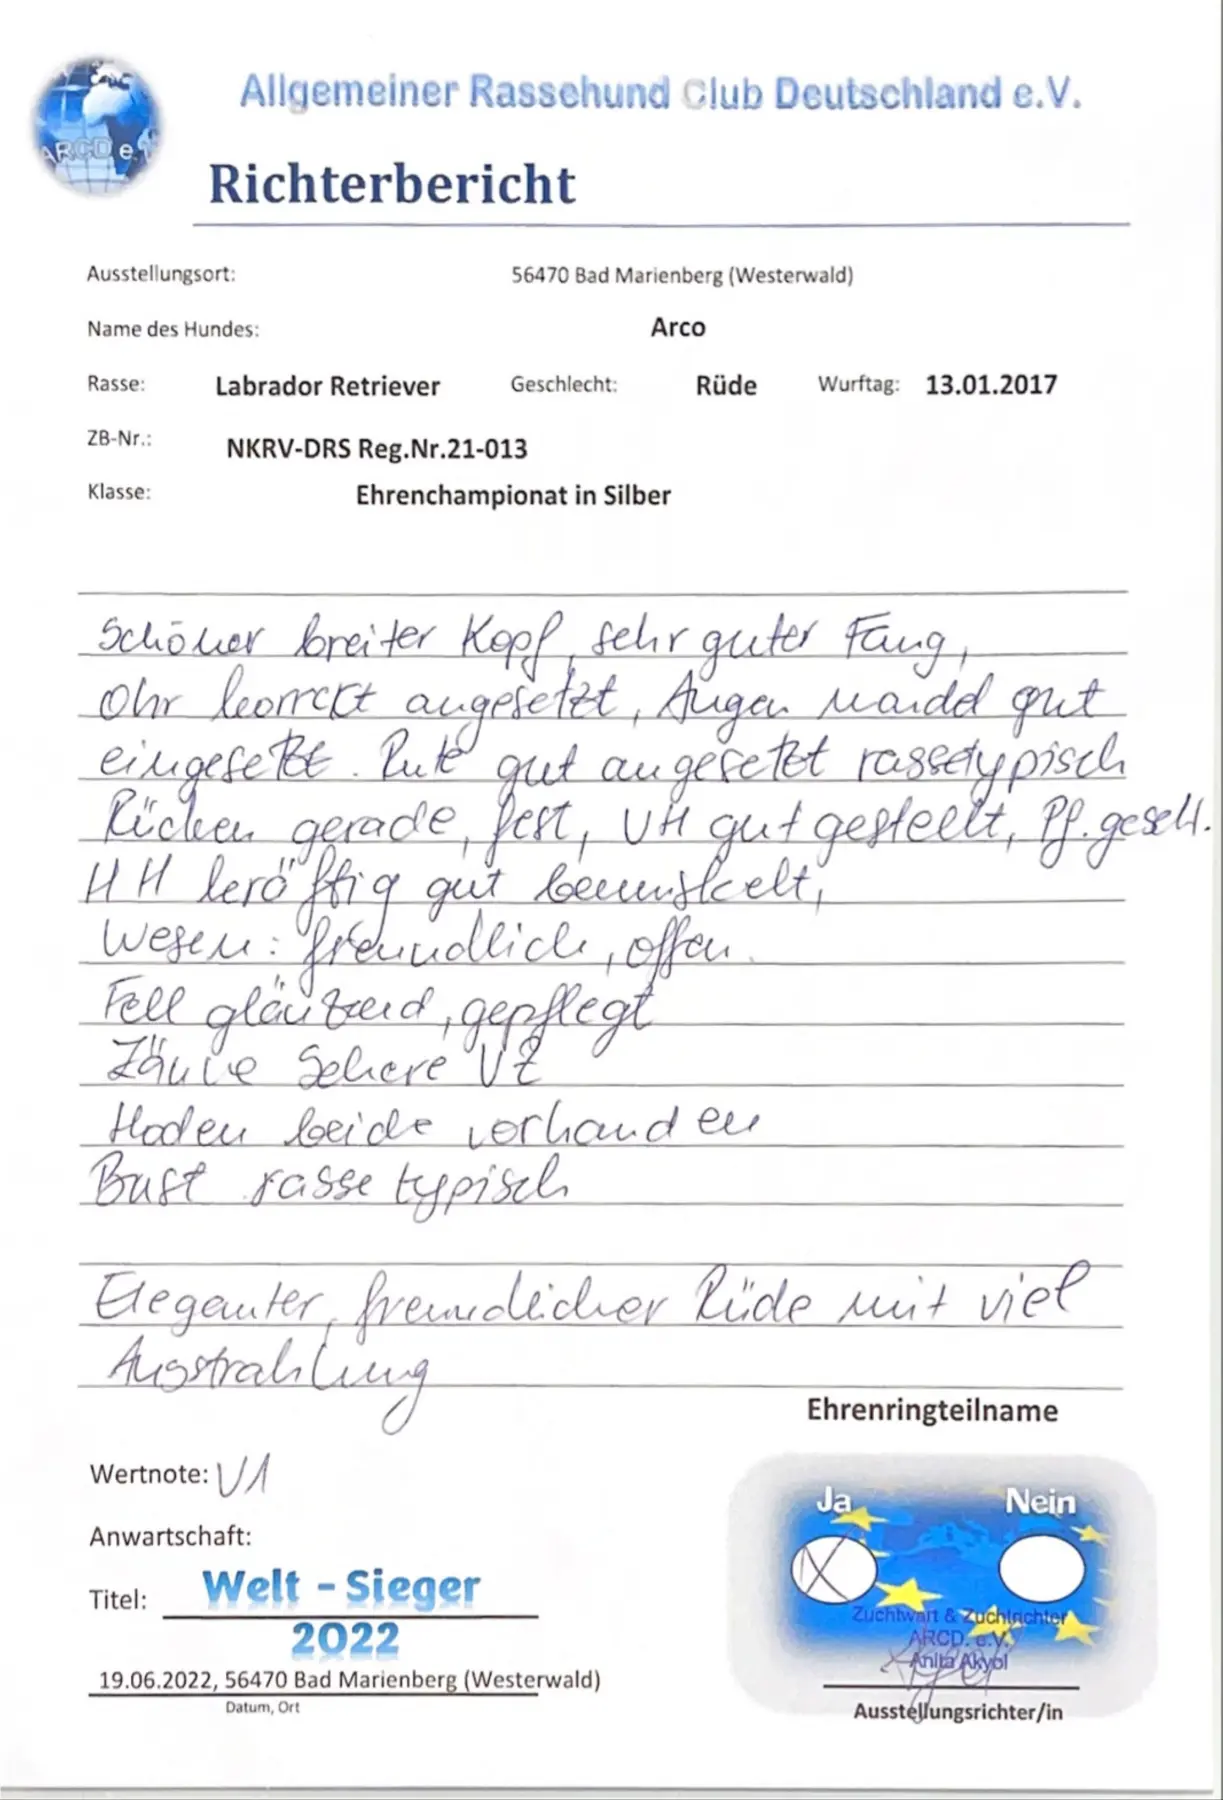 Allgemeiner Rassehund Club Deutschland e.V.
ARCD e.V
Richterbericht
Ausstellungsort: 56470 Bad Marienberg (Westerwald)
Name des Hundes: Arco
Rasse: Labrador Retriever Geschlecht: Rüde Wurftag: 13.01.2017
ZB-Nr.: NKRV-DRS Reg.Nr.21-013
Klasse: Ehrenchampionat in Silber
Schöner breiter Kopf, sehr guter Fang,
Ohr korrekt angesetzt, Augen mandel gut
eingesetzt. Rute gut angesetzt rassetypisch
Rücken gerade, fest, VH gut gestellt, Pf. geschl.
HH kräftig gut bemuskelt,
Wesen: freundlich, offen.
Fell glänzend, gepflegt
Zähne Schere VZ
Hoden beide vorhanden
Brust rassetypisch
Eleganter, freundlicher Rüde mit viel
Ausstrahlung
Ehrenringteilname
Wertnote: V1
Ja Nein
Anwartschaft:
X
Titel: Welt - Sieger
2022
Zuchtwart & Zuchtrichter
ARCD. e.V.
Anita Akyol
19.06.2022, 56470 Bad Marienberg (Westerwald)
Datum, Ort
Ausstellungsrichter/in